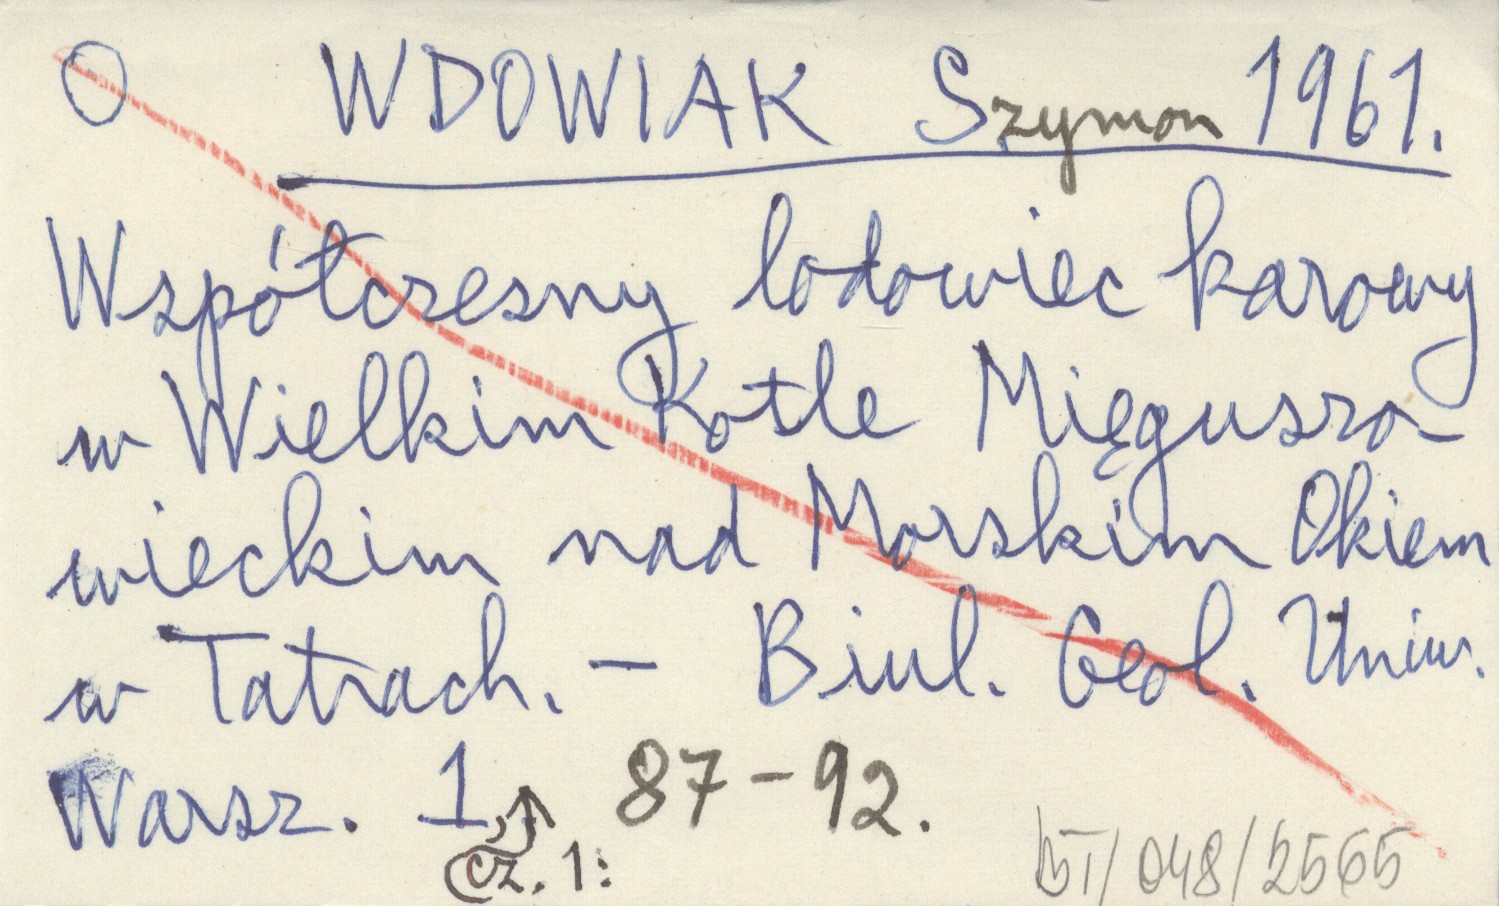 O WDOWIAK Szymon 1961.
Współczesny lodowiec karowy
w Wielkim Kotle Mięguszo-
wieckim nad Morskim Okiem
w Tatrach. – Biul. Geol. Uniw.
Warsz. 1, 87-92.
cz. 1:
BT/048/2565